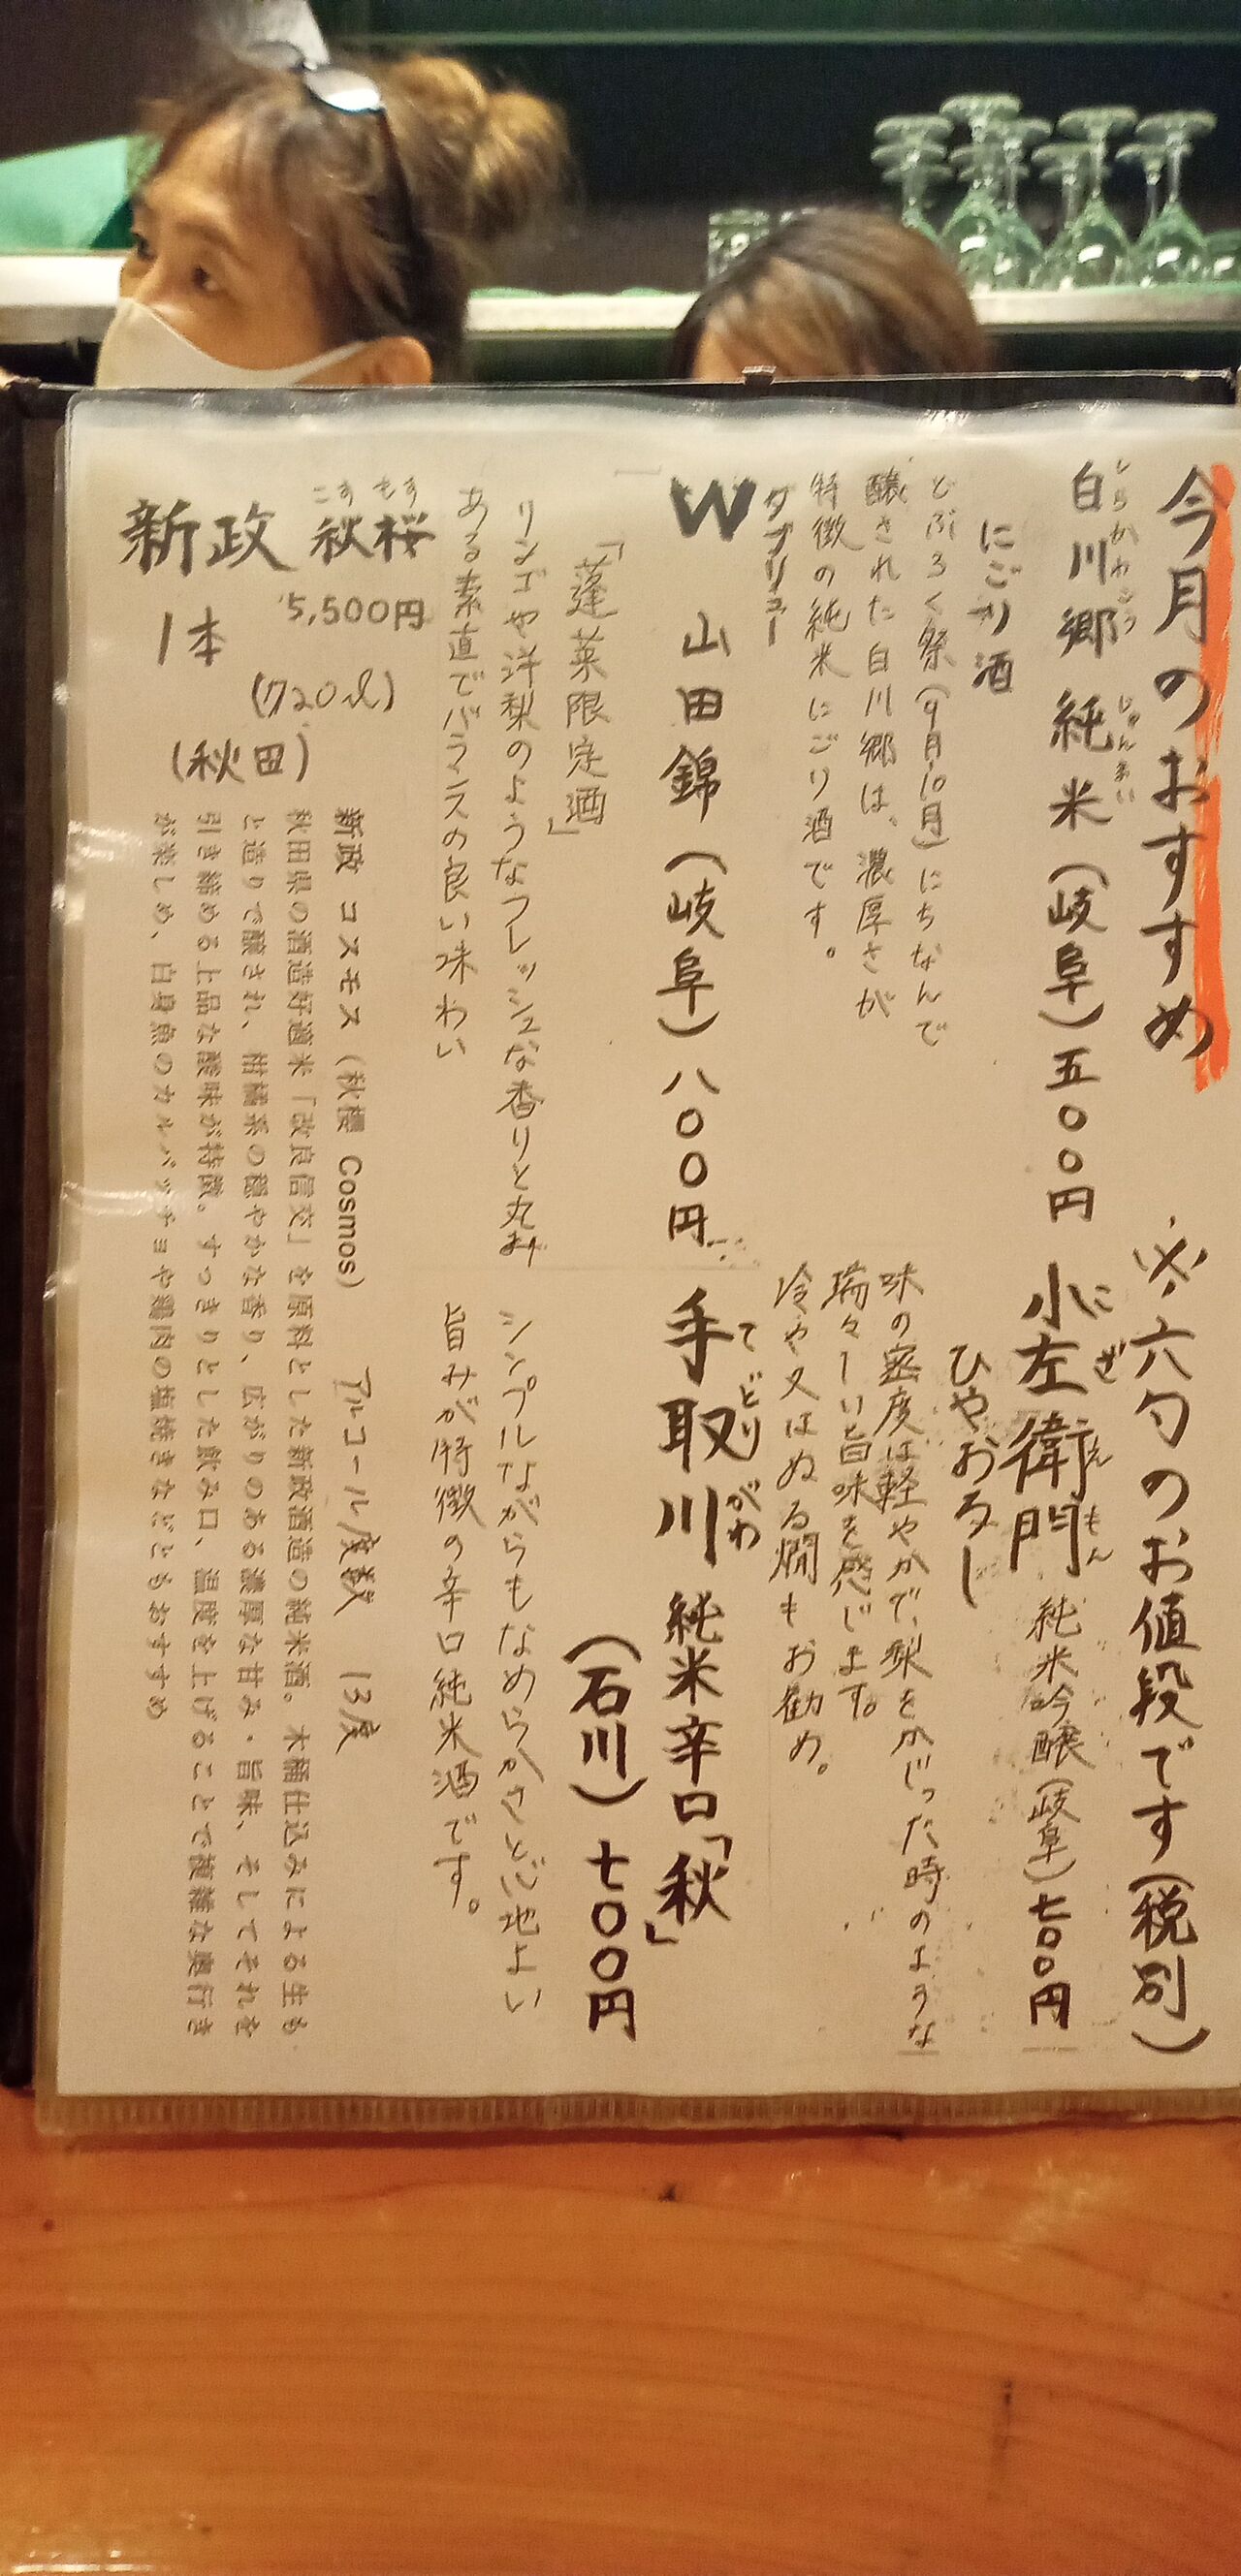 今月のおすすめ
※六勺のお値段です(税別)
しらかわごう じゅんまい
白川郷 純米(岐阜)五〇〇円
にごり酒
どぶろく祭(9月10月)にちなんで
醸された白川郷は、濃厚さが
特徴の純米にごり酒です。
にざえもん
小左衛門 純米吟醸(岐阜)七〇〇円
ひやおろし
味の密度は軽やかで、梨をかじった時のような
瑞々しい旨味を感じます。
冷や又はぬる燗もお勧め。
ダブリュー
W 山田錦(岐阜)八〇〇円
「蓬莱限定酒」
リンゴや洋梨のようなフレッシュな香りと丸み
ある素直でバランスの良い味わい
てどりがわ
手取川 純米辛口「秋」
(石川)七〇〇円
シンプルながらもなめらかさと心地よい
旨みが特徴の辛口純米酒です。
こすもす
新政 秋桜
5,500円
1本
(720ml)
(秋田)
新政 コスモス (秋櫻 Cosmos) アルコール度数 13度
秋田県の酒造好適米「改良信交」を原料とした新政酒造の純米酒。木桶仕込みによる生も
と造りで醸され、柑橘系の穏やかな香り、広がりのある濃厚な甘み・旨味、そしてそれを
引き締める上品な酸味が特徴。すっきりとした飲み口、温度を上げることで複雑な奥行き
が楽しめ、白身魚のカルパッチョや鶏肉の塩焼きなどともおすすめ